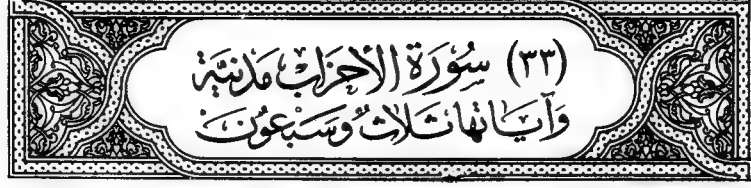 (٣٣) سُورَة الأحزاب مَدنيَّة
وَآيَاتها ثَلاثٌ وَسَبْعُونَ